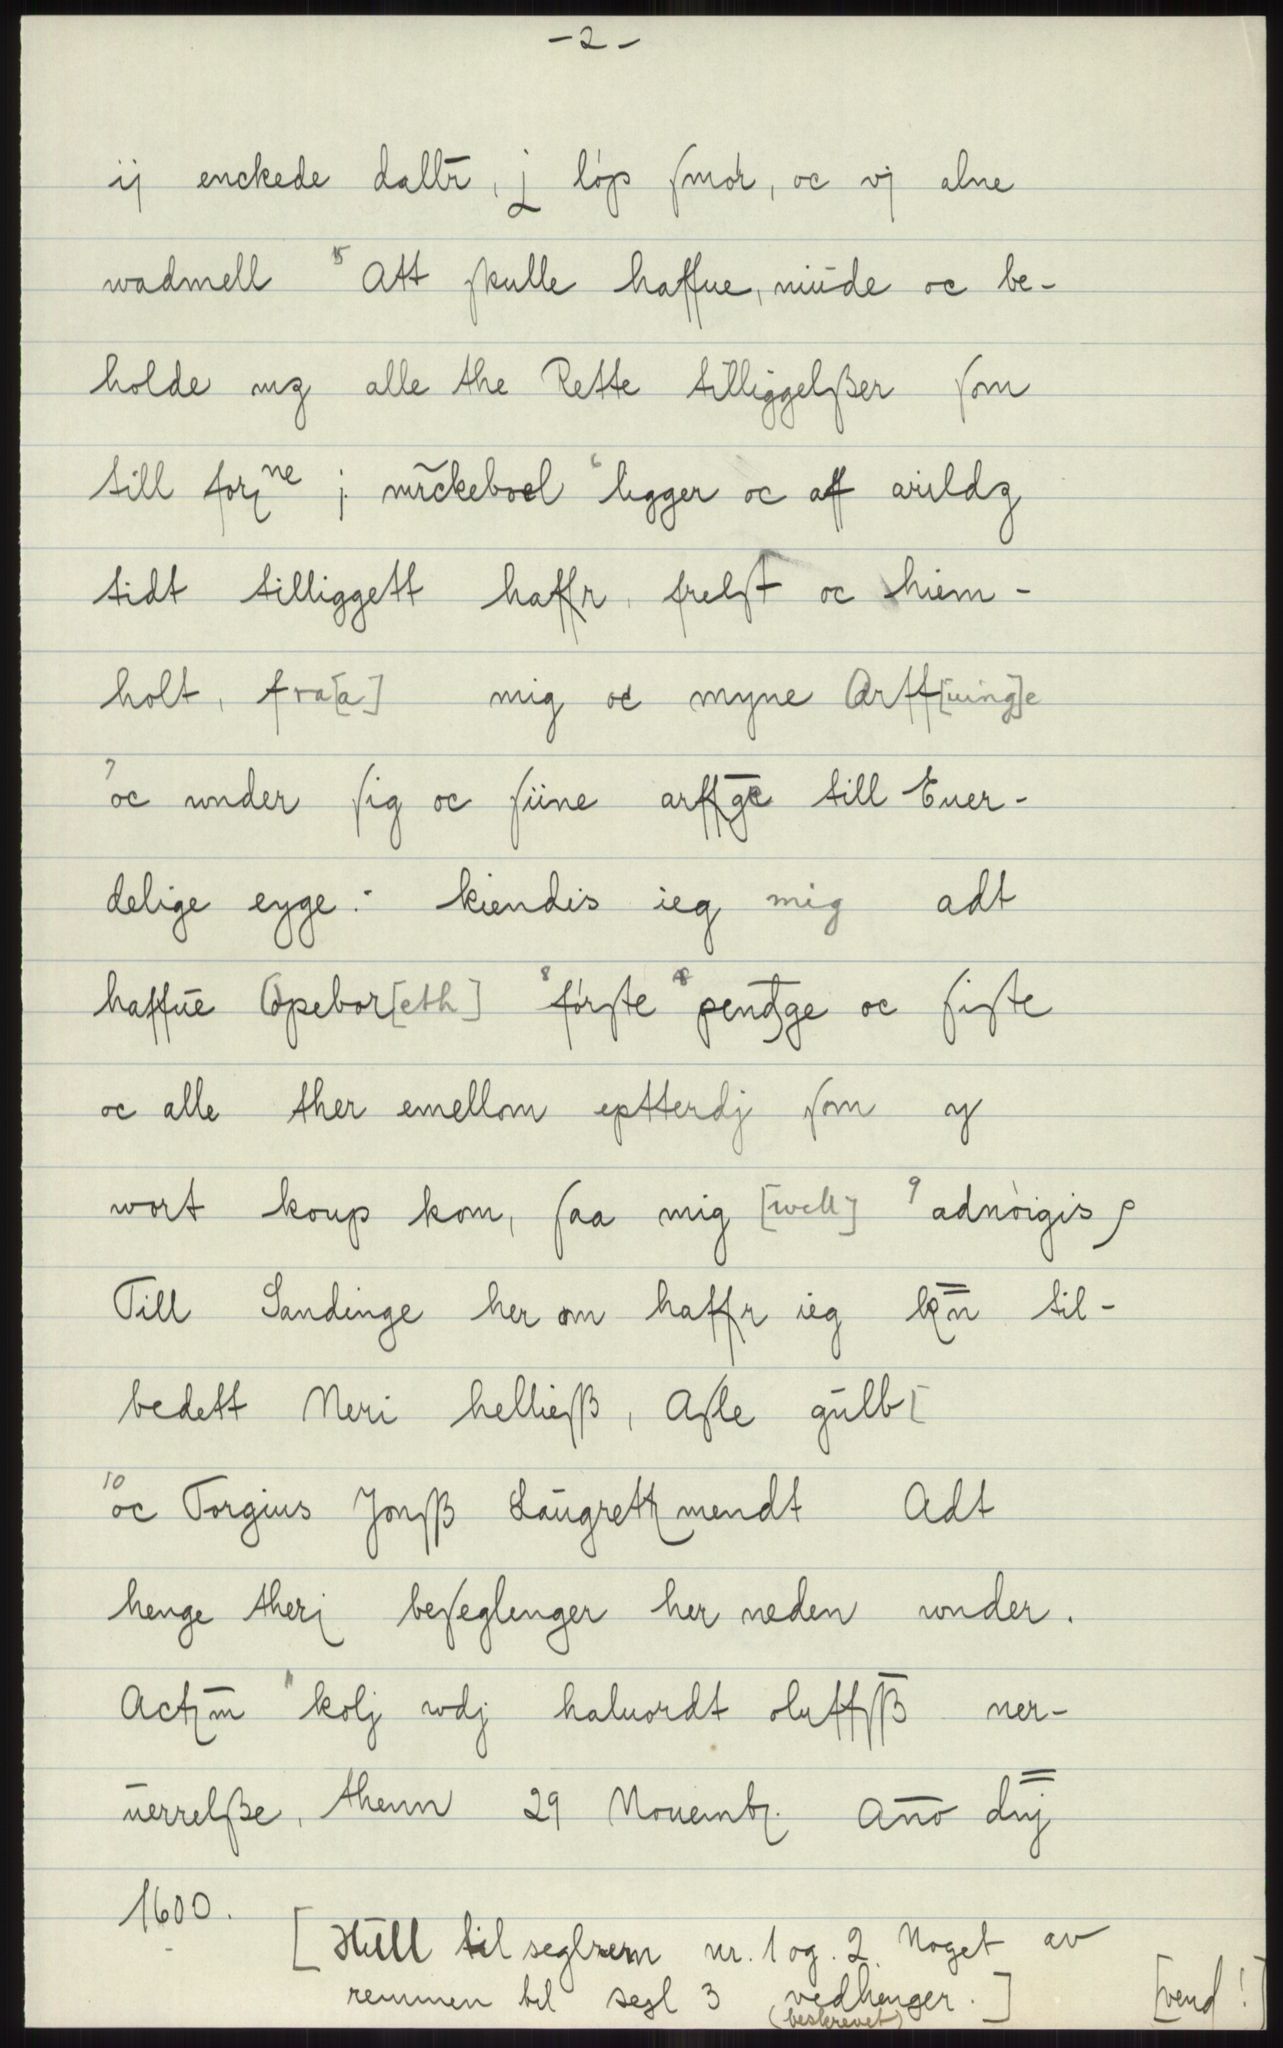 - 2 -
ij enckede dallr̄, j løp smør, oc vj alne
wadmell ⁵ Att skulle haffue, niude oc be-
holde mz alle the Rette tilliggelsser som
till forne j mickeboel ⁶ ligger oc aff arildz
tidt tilliggett haffr, frelst oc hiem-
holt, fra[a] mig oc myne Arff[uing]e
⁷ oc wnder sig oc siine arffge till Euer-
delige eyge. kiendis ieg mig adt
haffue Opebor[eth] ⁸ første pendge oc siste
oc alle ther emellom eptterdj som y
wort koup kom, saa mig [well] ⁹ adnøigis
Till Sandinge her om haffr ieg kn̄ til-
bedett Neri helliess, Asle gulb[
¹⁰ oc Torgius Jonss Laugrettmendt Adt
henge theri beseglenger her neden wnder.
Actm̄ ¹¹ kolj wdj haluordt oluffss ner-
uerrelsse, thenn 29 Nouemb. Ano dnj
1600.
[Hull til seglrem nr. 1 og 2. Noget av
remmen til segl 3 vedhenger.]
(beskrevet)
[vend!]